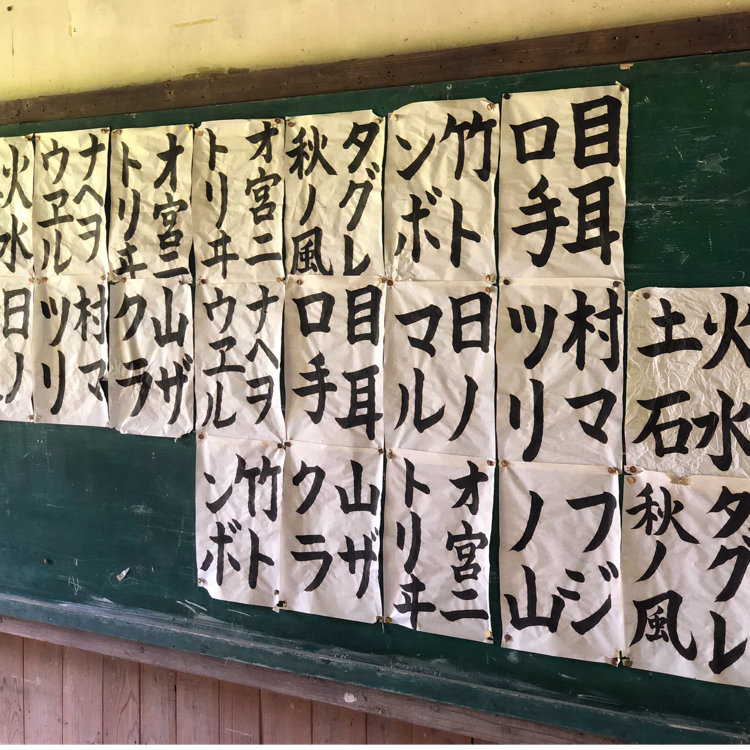 目耳
口手
竹ト
ンボ
夕グレ
秋ノ風
オ宮ニ
トリヰ
オ宮ニ
トリヰ
ナヘヲ
ウヱル
火水
火水
土石
村マ
ツリ
日ノ
マル
目耳
口手
ナヘヲ
ウヱル
山ザ
クラ
村マ
ツリ
日ノ
夕グレ
秋ノ風
フジ
ノ山
オ宮ニ
トリヰ
山ザ
クラ
竹ト
ンボ